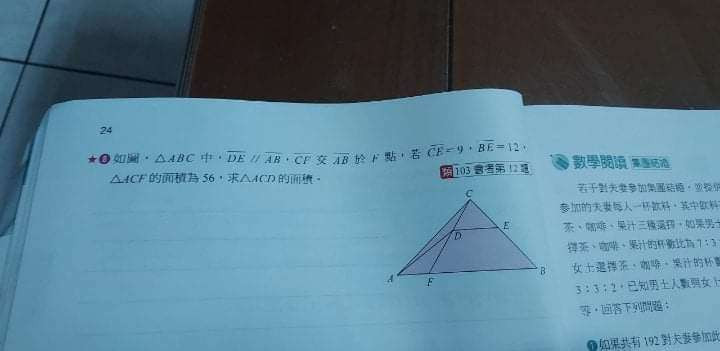 24
★❽ 如圖，△ABC 中，DE // AB，CF 交 AB 於 F 點，若 CE=9，BE=12，
△ACF 的面積為 56，求△ACD 的面積。
類 103 會考第 12 題
C
D
E
A
F
B
數學閱讀 集團結婚
若干對夫妻參加集團結婚，
參加的夫妻每人一杯飲料，其中飲料
茶、咖啡、果汁三種選擇，如果男士
擇茶、咖啡、果汁的杯數比為 7：3
女士選擇茶、咖啡、果汁的杯數
3：3：2，已知男士人數與女士
等，回答下列問題：
❶ 如果共有 192 對夫妻參加此